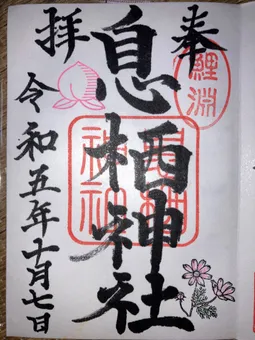 奉
拝
息栖神社
鯉淵
息栖神社
令和五年十月七日